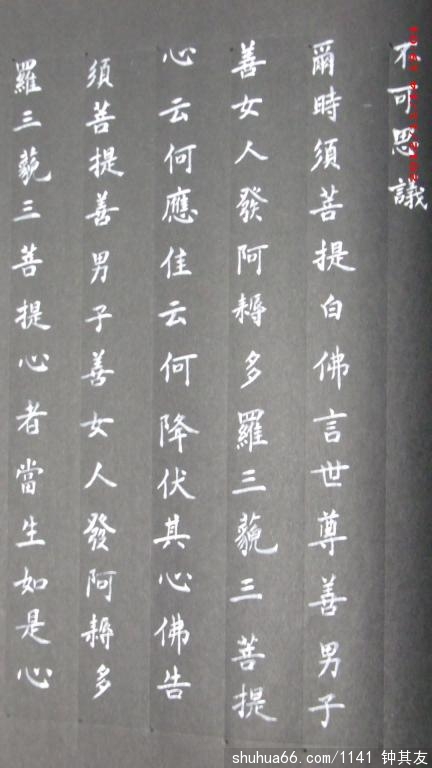 不可思議
爾時須菩提白佛言世尊善男子
善女人發阿耨多羅三藐三菩提
心云何應住云何降伏其心佛告
須菩提善男子善女人發阿耨多
羅三藐三菩提心者當生如是心
shuhua66.com/1141 钟其友